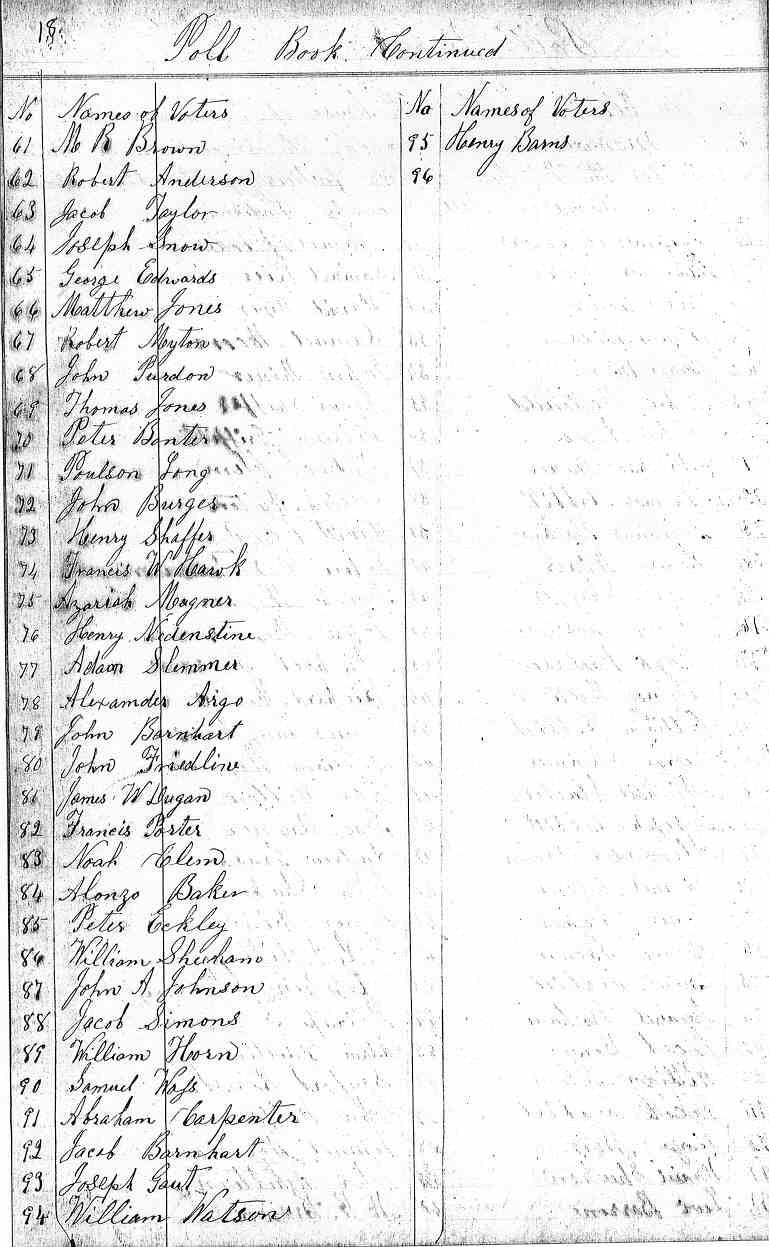 18
Poll Book Continued
No Names of Voters
61 M R Brown
62 Robert Anderson
63 Jacob Taylor
64 Joseph Snow
65 George Edwards
66 Matthew Jones
67 Robert Myton
68 John Purdon
69 Thomas Jones
70 Peter Banter
71 Poulson Long
72 John Burges
73 Henry Shaffer
74 Francis W Hawk
75 Azariah Magner
76 Henry Nedenstine
77 Adam Slemmer
78 Alexander Argo
79 John Barnhart
80 John Friedline
81 James W Dugan
82 Francis Porter
83 Noah Clem
84 Alonzo Baker
85 Peter Eckley
86 William
87 John A Johnson
88 Jacob Simons
89 William Horn
90 Samuel Wass
91 Abraham Carpenter
92 Jacob Barnhart
93 Joseph Gaut
94 William Watson
No Names of Voters
95 Henry Barns
96